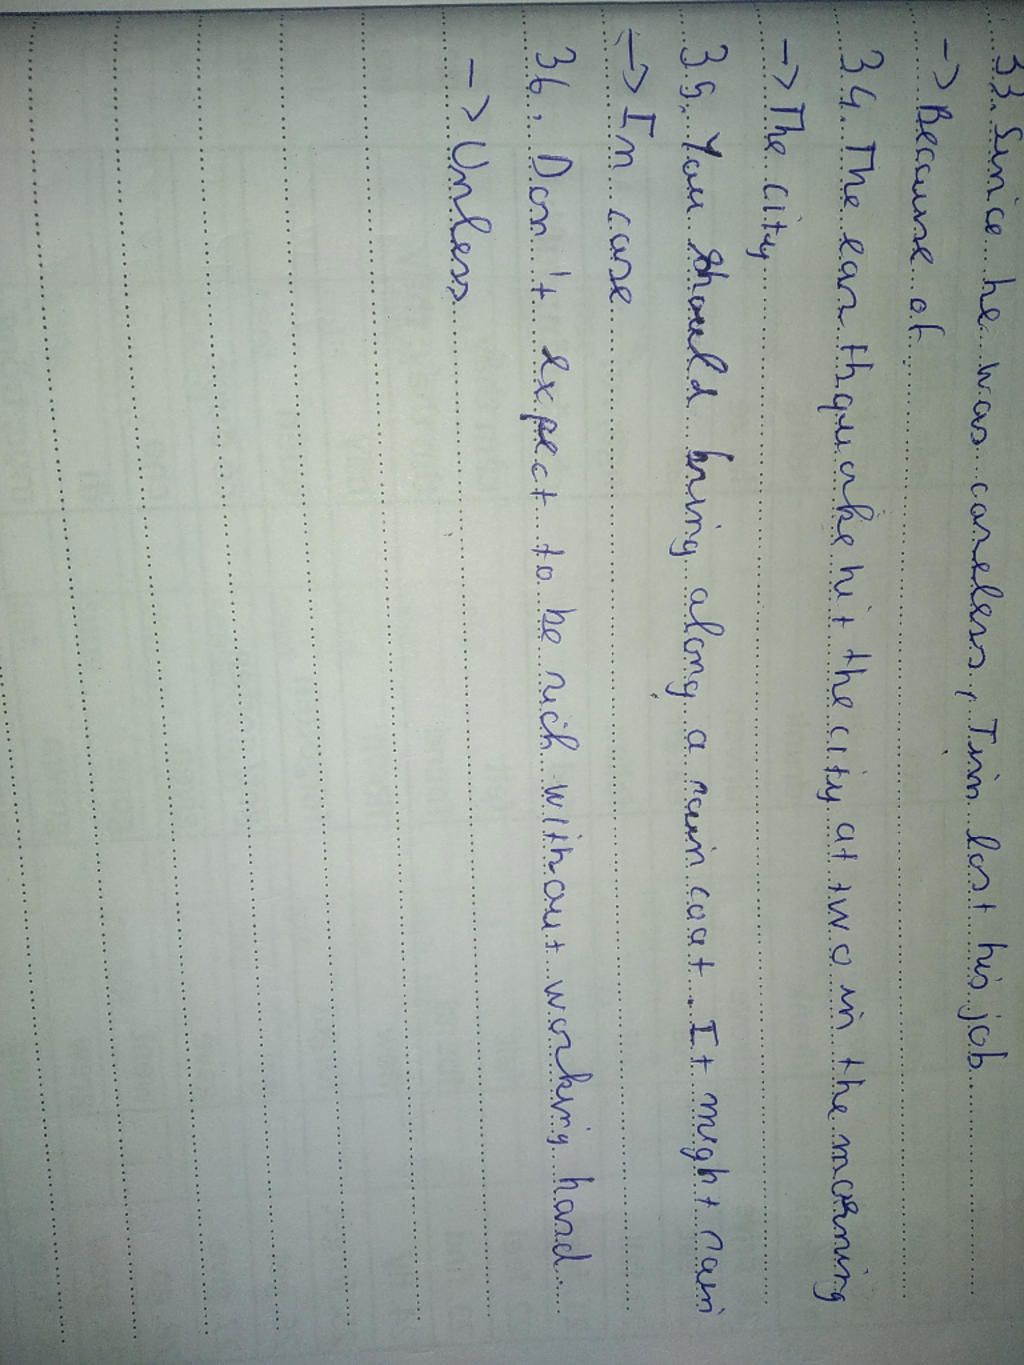 33. Sinice he was careless, Tim lost his job
-> Because of
34. The earthquake hit the city at two in the morning
-> The city
35. You should bring along a rain coat. It might rain
-> In case
36. Don't expect to be rich without working hard
-> Unless